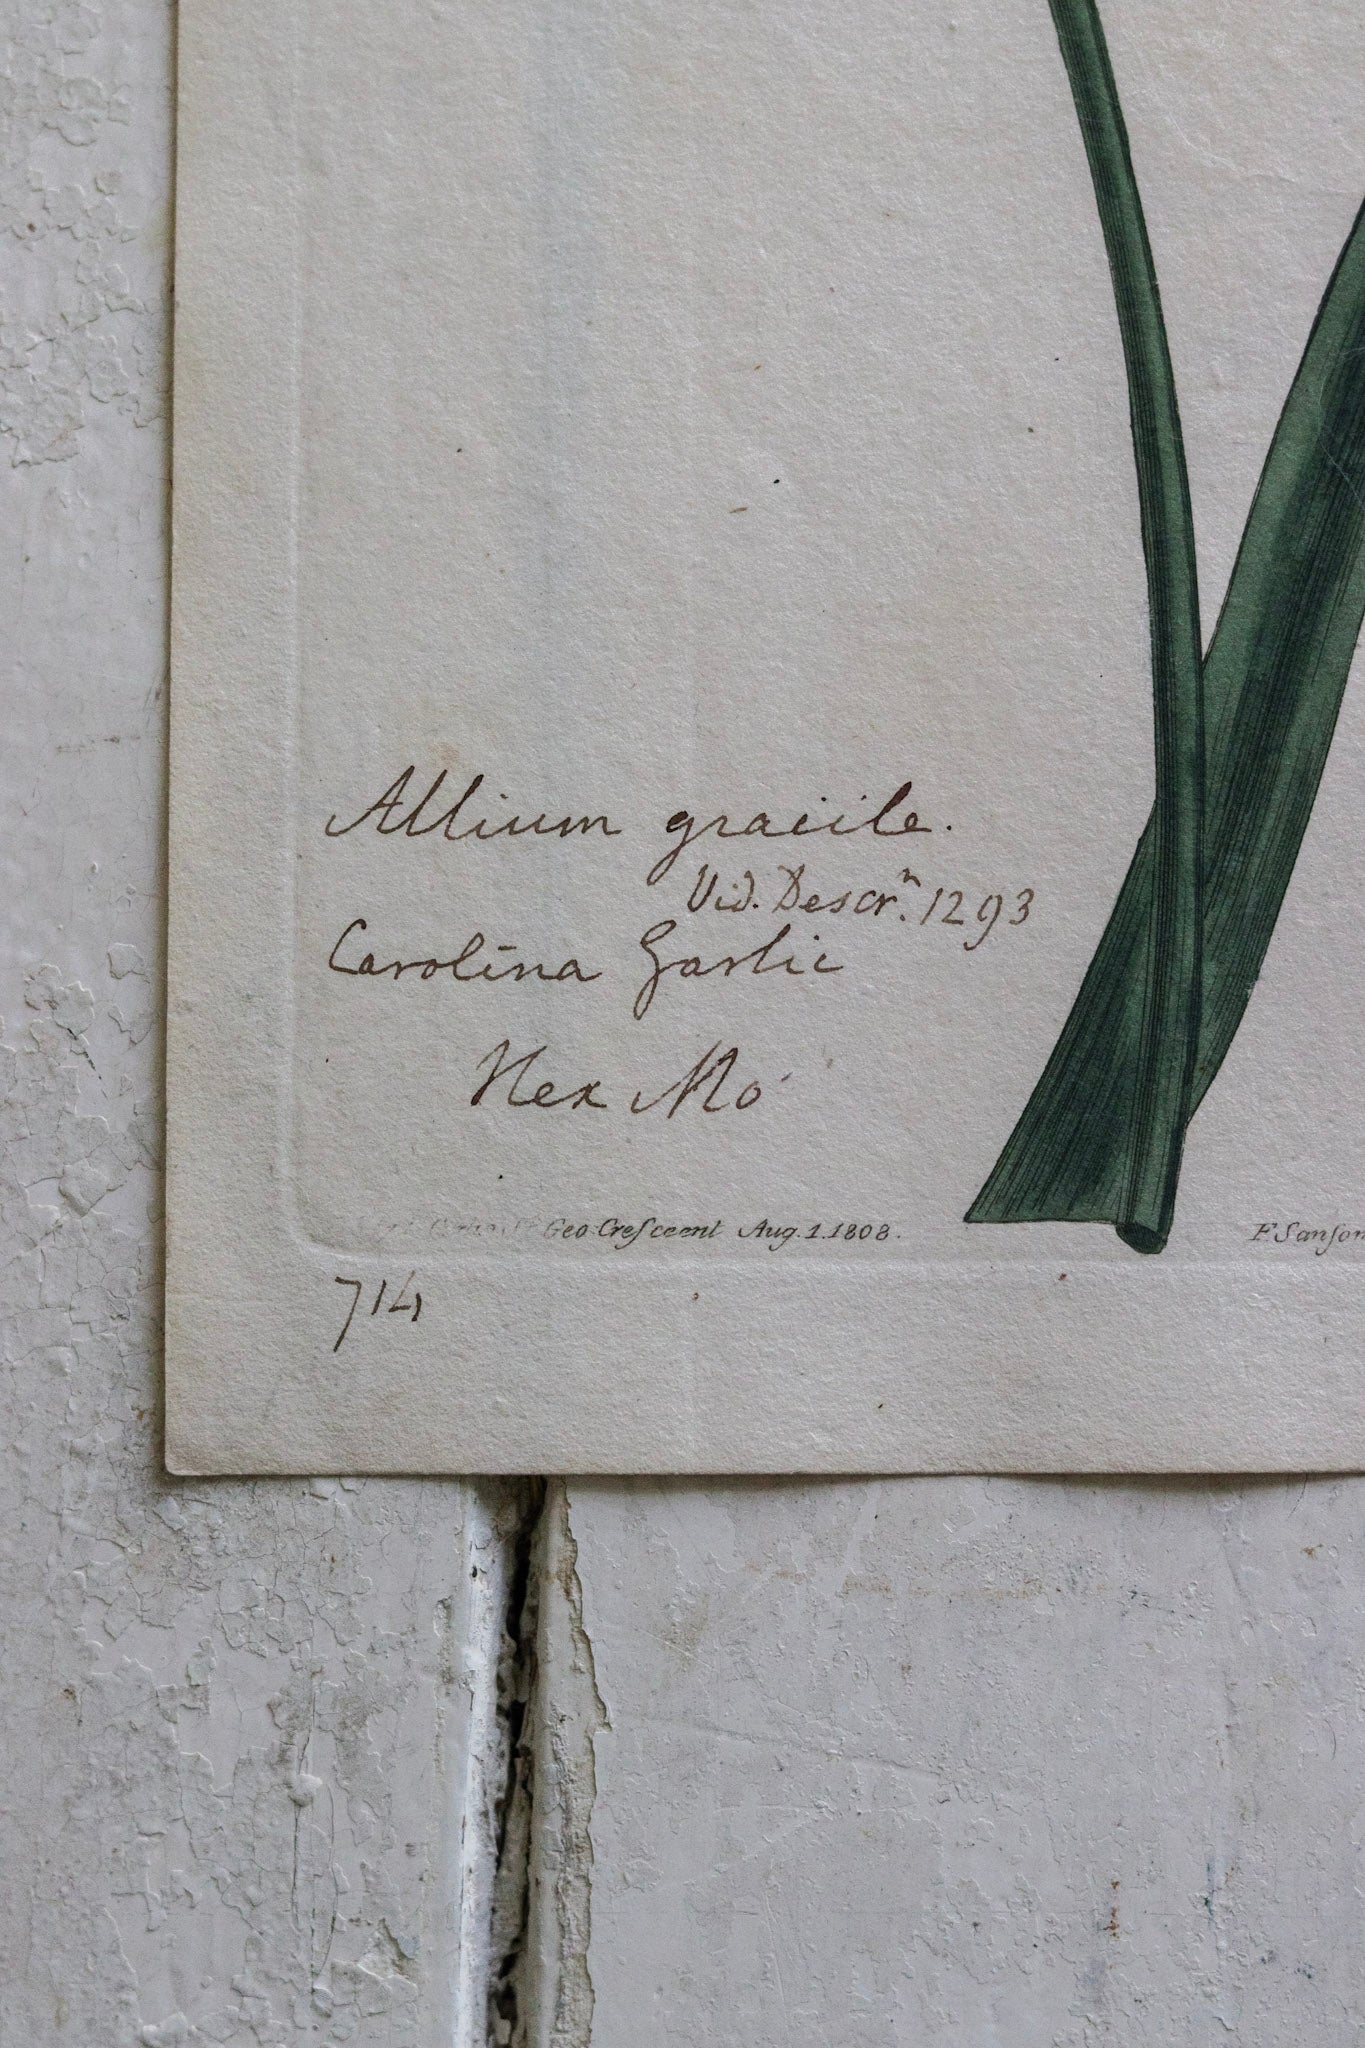 Allium gracile.
Vid. Descrⁿ. 1293
Carolina Garlic
Hex Mo
Geo Creſceent Aug. 1. 1808.
F. Sanſom
714